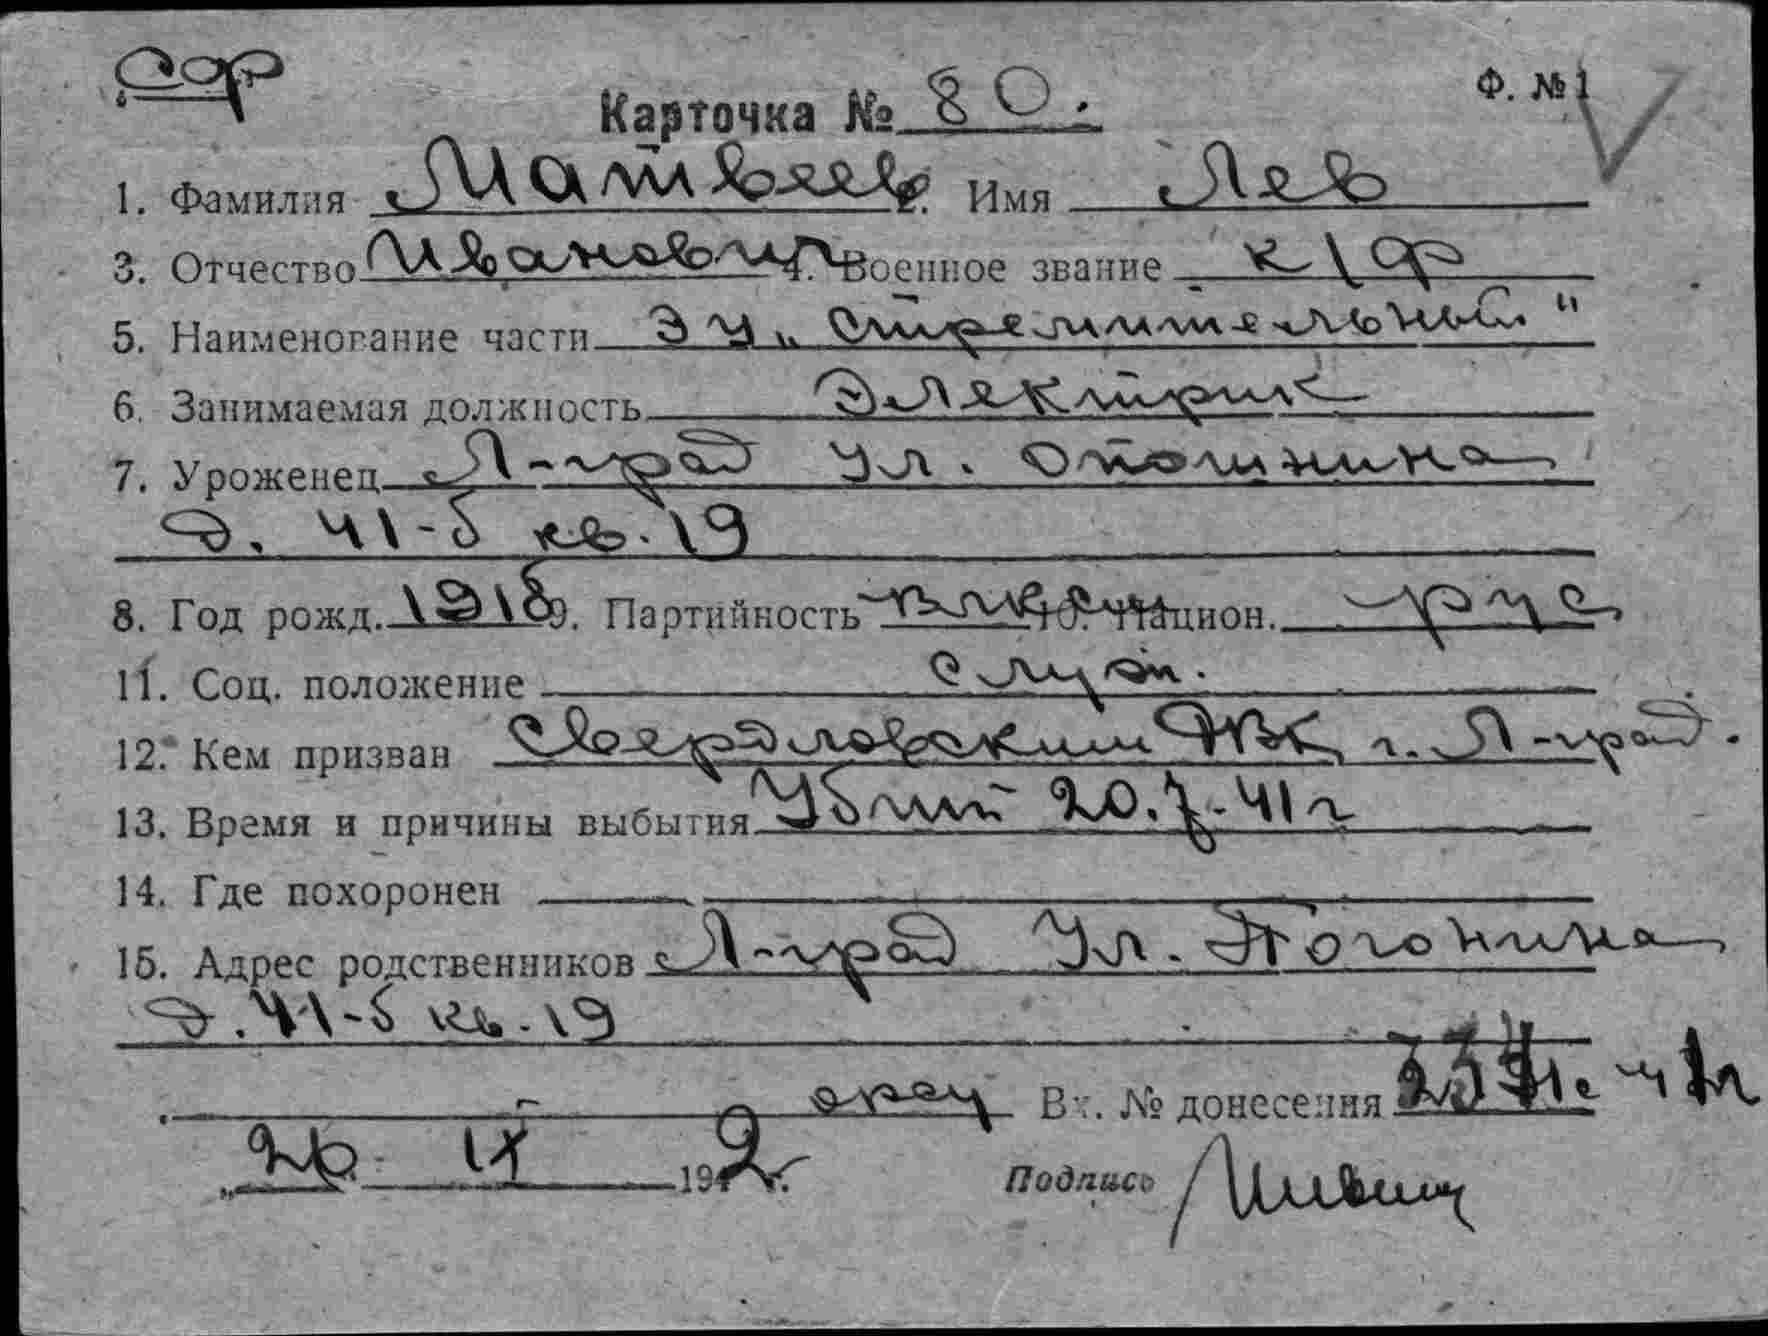 Сор
Карточка № 80. Ф. № 1
1. Фамилия Матвеев 2. Имя Лев
3. Отчество Иванович 4. Военное звание к/ф
5. Наименование части ЭМ „Стремительный"
6. Занимаемая должность Электрик
7. Уроженец Л-град ул.
д. 41-б кв. 19
8. Год рожд. 1918 9. Партийность ВЛКСМ 10. Национ. рус
11. Соц. положение служ.
12. Кем призван Свердловским РВК г. Л-град.
13. Время и причины выбытия Убит 20.7.-41 г
14. Где похоронен
15. Адрес родственников Л-град ул.
д. 41-б кв. 19
Вх. № донесения
26 IX 1942 г.
Подпись